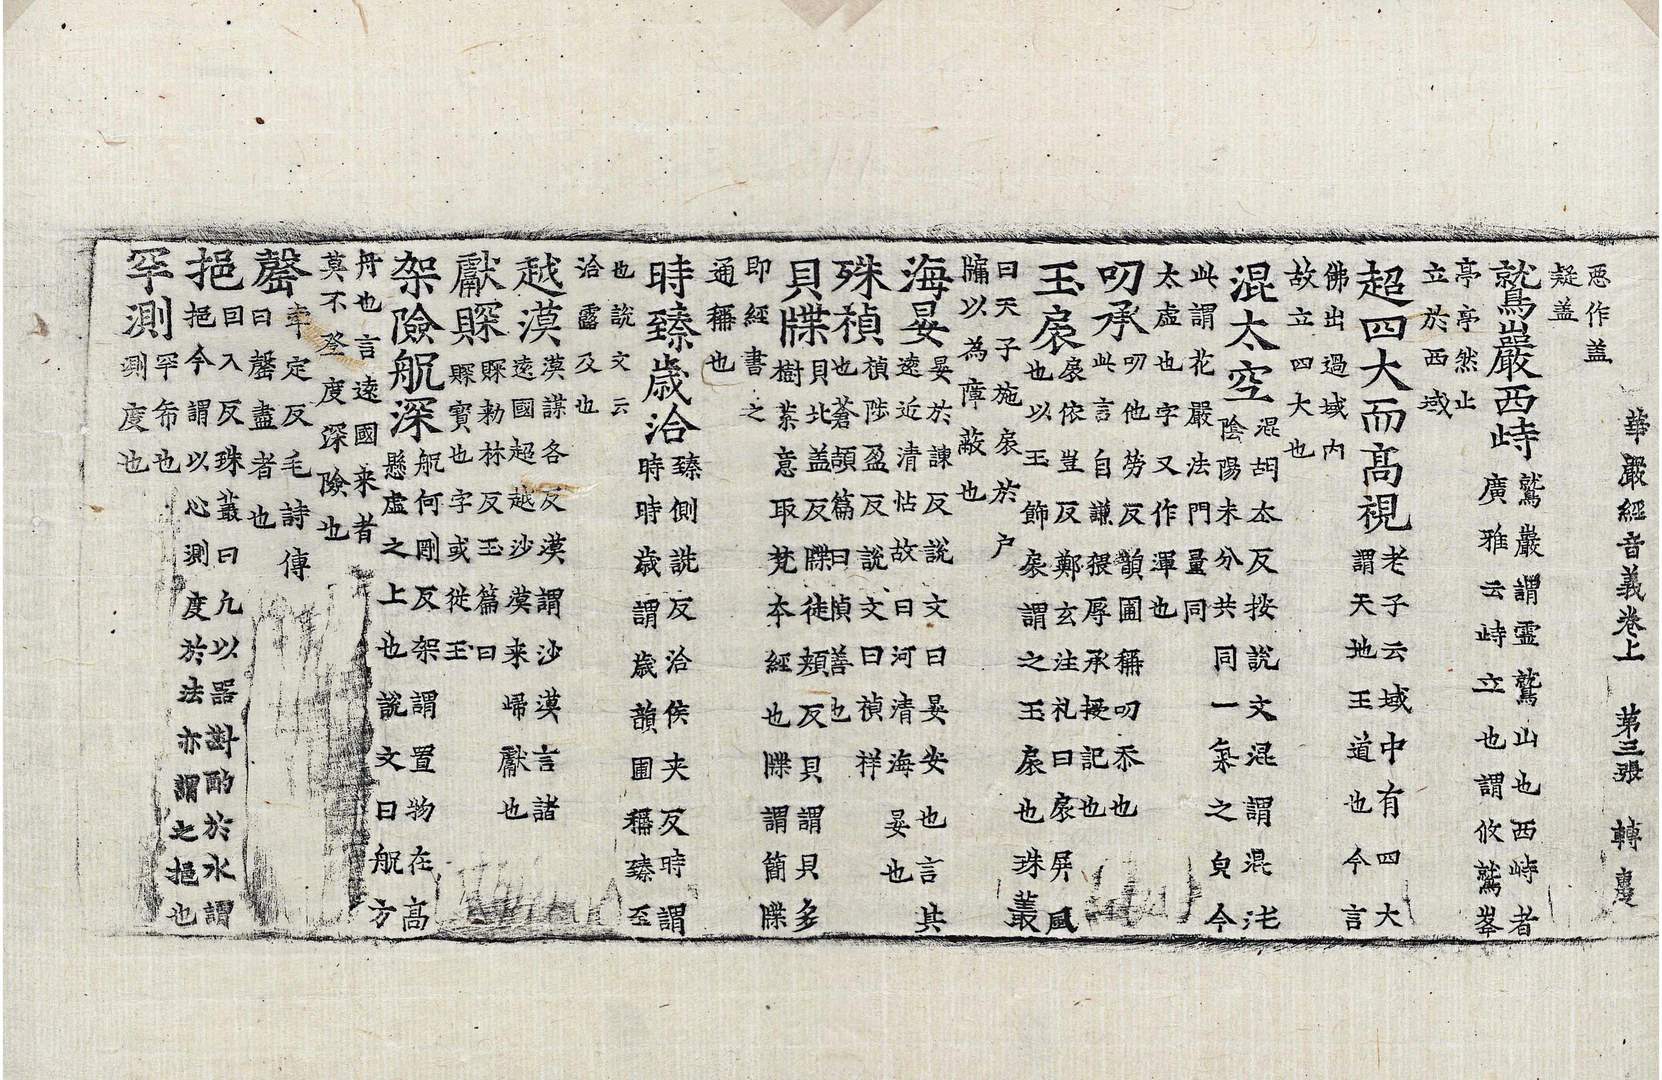 惡作盖
疑盖
華嚴經音義卷上 第三張 轉更
鷲巖西峙 鷲巖謂靈鷲山也西峙者
廣雅云峙立也謂攸鷲峯
亭亭然止
立於西域
超四大而高視 老子云域中有四大
謂天地王道也今言
佛出過域内
故立四大也
混太空 混胡太反按說文混謂混沌
陰陽未分共同一氣之㒵今
此謂花嚴法門量同
太虛也字又作渾也
叨承 叨他勞反韻圃稱叨忝也
此言自謙猥辱承擾記也
玉扆 扆依豈反鄭玄注礼曰扆屏風
也以玉飾扆謂之玉扆也珠叢
曰天子施扆於户
牖以為障蔽也
海晏 晏於諫反說文曰晏安也言其
遠近清怗故曰河清海晏也
殊禎 禎陟盈反說文曰禎祥
也蒼頡篇曰禎善也
貝牒 貝北盖反牒徒頰反貝謂貝多
樹葉意取梵本經也牒謂簡牒
即經書之
通稱也
時臻歲洽 臻側詵反洽侯夾反時謂
時時歲謂歲韻圃稱臻至
也說文云
洽霑及也
越漠 漠謀各反漠謂沙漠言諸
遠國超越沙漠来歸獻也
獻賝 賝勑林反玉篇曰
賝寶也字或從玉
架險航深 航何剛反架謂置物在高
懸虛之上也說文曰航方
舟也言遠國来者
莫不登度深險也
罄 牽定反毛詩傳
曰罄盡者也
挹 回入反珠叢曰凢以器㪺酌於水謂
挹今謂以心測度於法亦謂之挹也
罕測 罕希也
測度也